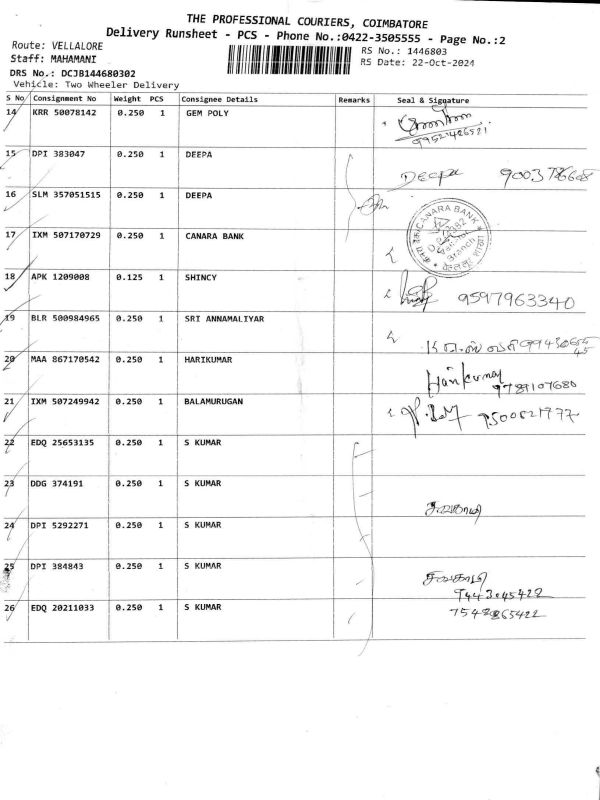 THE PROFESSIONAL COURIERS, COIMBATORE
Delivery Runsheet - PCS - Phone No.:0422-3505555 - Page No.:2
Route: VELLALORE
RS No.: 1446803
Staff: MAHAMANI
RS Date: 22-Oct-2024
DRS No.: DCJB144680302
Vehicle: Two Wheeler Delivery
S No Consignment No Weight PCS Consignee Details Remarks Seal & Signature
14 KRR 50078142 0.250 1 GEM POLY
15 DPI 383047 0.250 1 DEEPA
Deepa
16 SLM 357051515 0.250 1 DEEPA
CANARA BANK
Branch
17 IXM 507170729 0.250 1 CANARA BANK
18 APK 1209008 0.125 1 SHINCY
9597963340
19 BLR 500984965 0.250 1 SRI ANNAMALIYAR
20 MAA 867170542 0.250 1 HARIKUMAR
Harikumar
9789107680
21 IXM 507249942 0.250 1 BALAMURUGAN
22 EDQ 25653135 0.250 1 S KUMAR
23 DDG 374191 0.250 1 S KUMAR
24 DPI 5292271 0.250 1 S KUMAR
25 DPI 384843 0.250 1 S KUMAR
9443045422
26 EDQ 20211033 0.250 1 S KUMAR